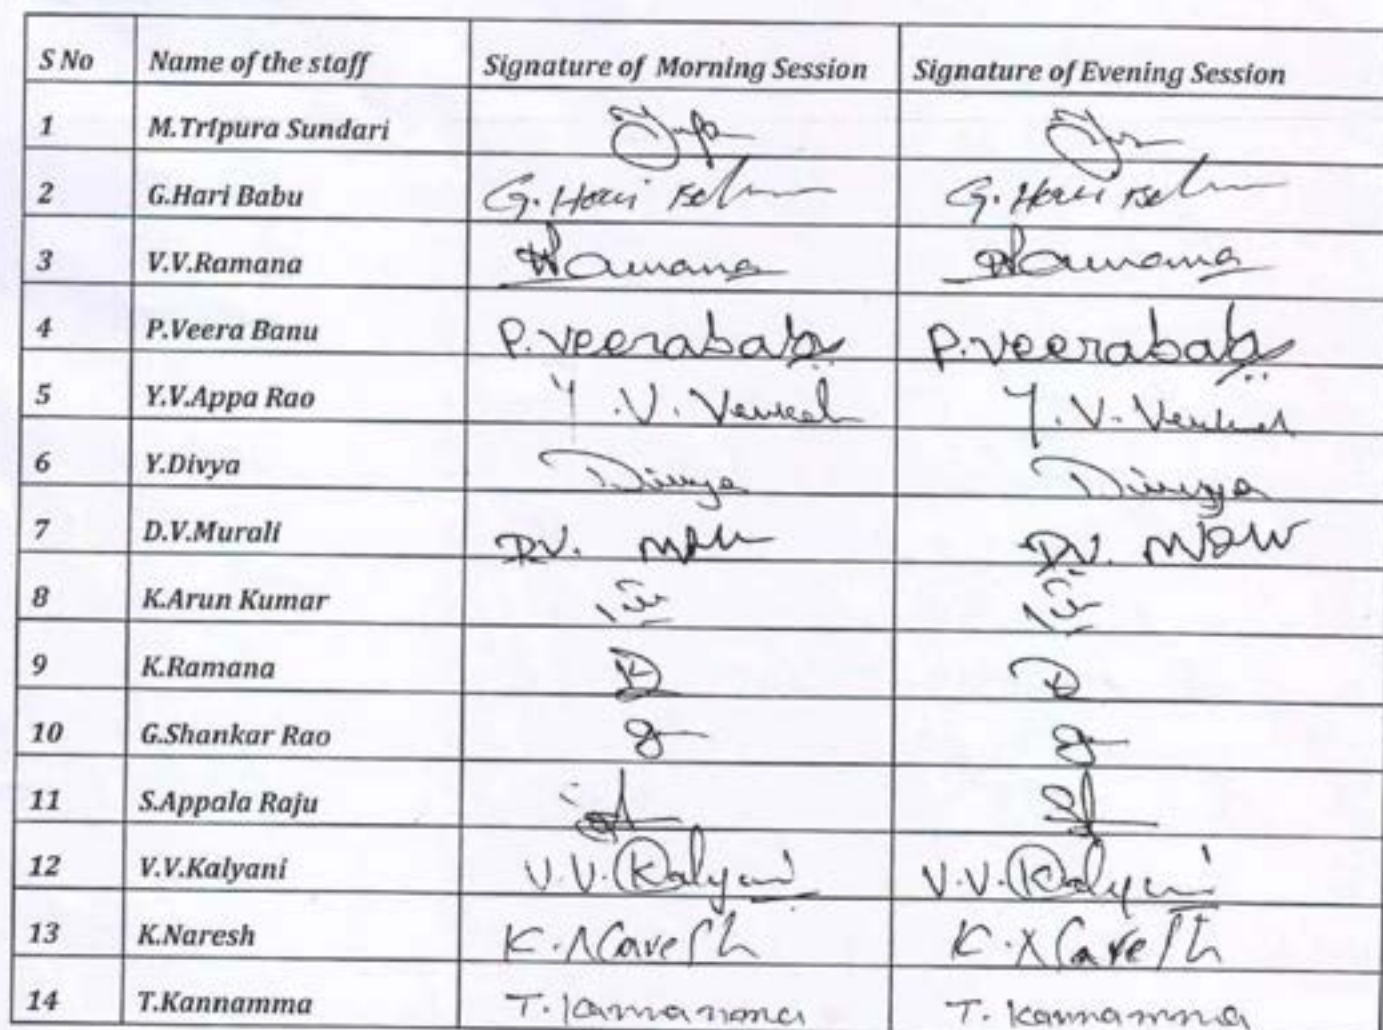 S No Name of the staff Signature of Morning Session Signature of Evening Session
1 M.Tripura Sundari
2 G.Hari Babu G. Hari G. Hari
3 V.V.Ramana Ramana Ramana
4 P.Veera Banu P.Veerababu P.Veerababu
5 Y.V.Appa Rao Y.V. Y.V.
6 Y.Divya Divya Divya
7 D.V.Murali D.V. D.V.
8 K.Arun Kumar
9 K.Ramana
10 G.Shankar Rao
11 S.Appala Raju
12 V.V.Kalyani V.V.Kalyani V.V.Kalyani
13 K.Naresh K.Naresh K.Naresh
14 T.Kannamma T.Kannamma T.Kannamma